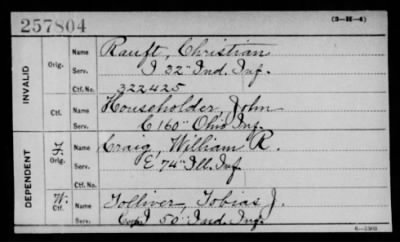 257804
(3-H-4)
INVALID
Orig.
Name Rauft, Christian
Serv. I 32" Ind. Inf.
Ctf. No. 322425
Ctf.
Name Householder, John
Serv. C 160" Ohio Inf.
DEPENDENT
Orig.
Name Craig, William R.
Serv. E 74" Ill. Inf
Ctf. No.
W. Ctf.
Name Tolliver, Tobias J.
Serv. I 50" Ind. Inf.